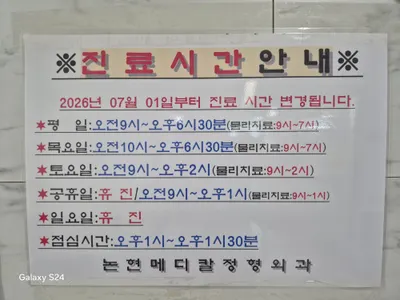 ※진료시간안내※
2026년 07월 01일부터 진료 시간 변경됩니다.
★평 일:오전9시~오후6시30분(물리치료:9시~7시)
★목요일:오전10시~오후6시30분(물리치료:9시~7시)
★토요일:오전9시~오후2시(물리치료:9시~2시)
★공휴일:휴 진/오전9시~오후1시(물리치료:9시~1시)
★일요일:휴 진
★점심시간:오후1시~오후1시30분
논현메디칼정형외과
Galaxy S24